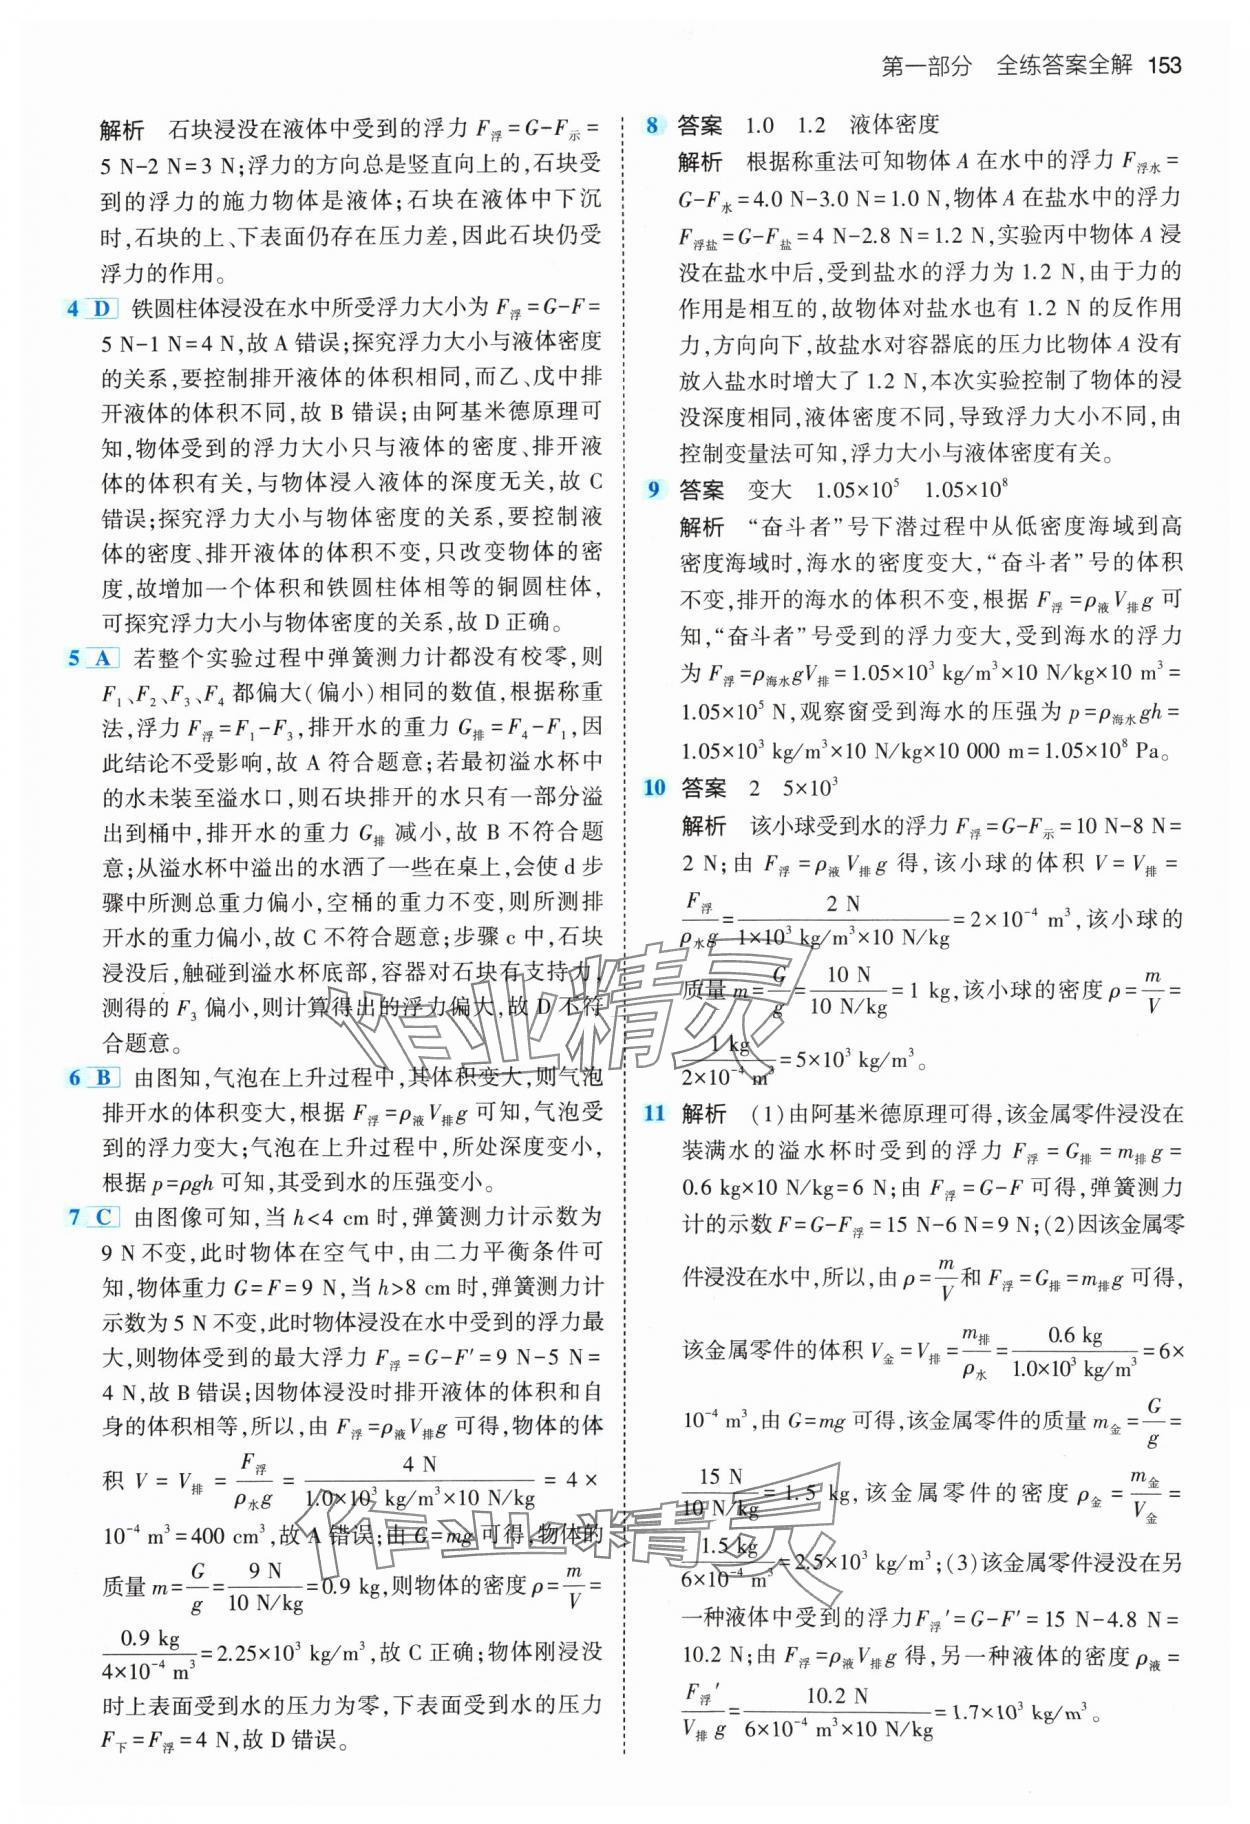 第一部分 全练答案全解 153
解析 石块浸没在液体中受到的浮力 F浮=G-F示=
5 N-2 N=3 N;浮力的方向总是竖直向上的,石块受
到的浮力的施力物体是液体;石块在液体中下沉
时,石块的上、下表面仍存在压力差,因此石块仍受
浮力的作用。
4 D 铁圆柱体浸没在水中所受浮力大小为 F浮=G-F=
5 N-1 N=4 N,故 A 错误;探究浮力大小与液体密度
的关系,要控制排开液体的体积相同,而乙、戊中排
开液体的体积不同,故 B 错误;由阿基米德原理可
知,物体受到的浮力大小只与液体的密度、排开液
体的体积有关,与物体浸入液体的深度无关,故 C
错误;探究浮力大小与物体密度的关系,要控制液
体的密度、排开液体的体积不变,只改变物体的密
度,故增加一个体积和铁圆柱体相等的铜圆柱体,
可探究浮力大小与物体密度的关系,故 D 正确。
5 A 若整个实验过程中弹簧测力计都没有校零,则
F₁、F₂、F₃、F₄ 都偏大(偏小)相同的数值,根据称重
法,浮力 F浮=F₁-F₃,排开水的重力 G排=F₄-F₁,因
此结论不受影响,故 A 符合题意;若最初溢水杯中
的水未装至溢水口,则石块排开的水只有一部分溢
出到桶中,排开水的重力 G排 减小,故 B 不符合题
意;从溢水杯中溢出的水洒了一些在桌上,会使 d 步
骤中所测总重力偏小,空桶的重力不变,则所测排
开水的重力偏小,故 C 不符合题意;步骤 c 中,石块
浸没后,触碰到溢水杯底部,容器对石块有支持力,
测得的 F₃ 偏小,则计算得出的浮力偏大,故 D 不符
合题意。
6 B 由图知,气泡在上升过程中,其体积变大,则气泡
排开水的体积变大,根据 F浮=ρ液V排g 可知,气泡受
到的浮力变大;气泡在上升过程中,所处深度变小,
根据 p=ρgh 可知,其受到水的压强变小。
7 C 由图像可知,当 h<4 cm 时,弹簧测力计示数为
9 N 不变,此时物体在空气中,由二力平衡条件可
知,物体重力 G=F=9 N,当 h>8 cm 时,弹簧测力计
示数为 5 N 不变,此时物体浸没在水中受到的浮力最
大,则物体受到的最大浮力 F浮=G-F′=9 N-5 N=
4 N,故 B 错误;因物体浸没时排开液体的体积和自
身的体积相等,所以,由 F浮=ρ液V排g 可得,物体的体
积 V = V排 = F浮/ρ水g = 4 N/1.0×10³ kg/m³×10 N/kg = 4 ×
10⁻⁴ m³=400 cm³,故 A 错误;由 G=mg 可得,物体的
质量 m=G/g=9 N/10 N/kg=0.9 kg,则物体的密度 ρ=m/V=
0.9 kg/4×10⁻⁴ m³=2.25×10³ kg/m³,故 C 正确;物体刚浸没
时上表面受到水的压力为零,下表面受到水的压力
F下=F浮=4 N,故 D 错误。
8 答案 1.0 1.2 液体密度
解析 根据称重法可知物体 A 在水中的浮力 F浮水=
G-F水=4.0 N-3.0 N=1.0 N,物体 A 在盐水中的浮力
F浮盐=G-F盐=4 N-2.8 N=1.2 N,实验丙中物体 A 浸
没在盐水中后,受到盐水的浮力为 1.2 N,由于力的
作用是相互的,故物体对盐水也有 1.2 N 的反作用
力,方向向下,故盐水对容器底的压力比物体 A 没有
放入盐水时增大了 1.2 N,本次实验控制了物体的浸
没深度相同,液体密度不同,导致浮力大小不同,由
控制变量法可知,浮力大小与液体密度有关。
9 答案 变大 1.05×10⁵ 1.05×10⁸
解析 “奋斗者”号下潜过程中从低密度海域到高
密度海域时,海水的密度变大,“奋斗者”号的体积
不变,排开的海水的体积不变,根据 F浮=ρ液V排g 可
知,“奋斗者”号受到的浮力变大,受到海水的浮力
为 F浮=ρ海水gV排=1.05×10³ kg/m³×10 N/kg×10 m³=
1.05×10⁵ N,观察窗受到海水的压强为 p=ρ海水gh=
1.05×10³ kg/m³×10 N/kg×10 000 m=1.05×10⁸ Pa。
10 答案 2 5×10³
解析 该小球受到水的浮力 F浮=G-F示=10 N-8 N=
2 N;由 F浮=ρ液V排g 得,该小球的体积 V=V排=
F浮/ρ水g=2 N/1×10³ kg/m³×10 N/kg=2×10⁻⁴ m³,该小球的
质量 m=G/g=10 N/10 N/kg=1 kg,该小球的密度 ρ=m/V=
1 kg/2×10⁻⁴ m³=5×10³ kg/m³。
11 解析 (1)由阿基米德原理可得,该金属零件浸没在
装满水的溢水杯时受到的浮力 F浮=G排=m排g=
0.6 kg×10 N/kg=6 N;由 F浮=G-F 可得,弹簧测力
计的示数 F=G-F浮=15 N-6 N=9 N;(2)因该金属零
件浸没在水中,所以,由 ρ=m/V和 F浮=G排=m排g 可得,
该金属零件的体积 V金=V排=m排/ρ水=0.6 kg/1.0×10³ kg/m³=6×
10⁻⁴ m³,由 G=mg 可得,该金属零件的质量 m金=G/g=
15 N/10 N/kg=1.5 kg,该金属零件的密度 ρ金=m金/V金=
1.5 kg/6×10⁻⁴ m³=2.5×10³ kg/m³;(3)该金属零件浸没在另
一种液体中受到的浮力F浮′=G-F′=15 N-4.8 N=
10.2 N;由 F浮=ρ液V排g 得,另一种液体的密度 ρ液=
F浮′/V排g=10.2 N/6×10⁻⁴ m³×10 N/kg=1.7×10³ kg/m³。
作业精灵
作业精灵